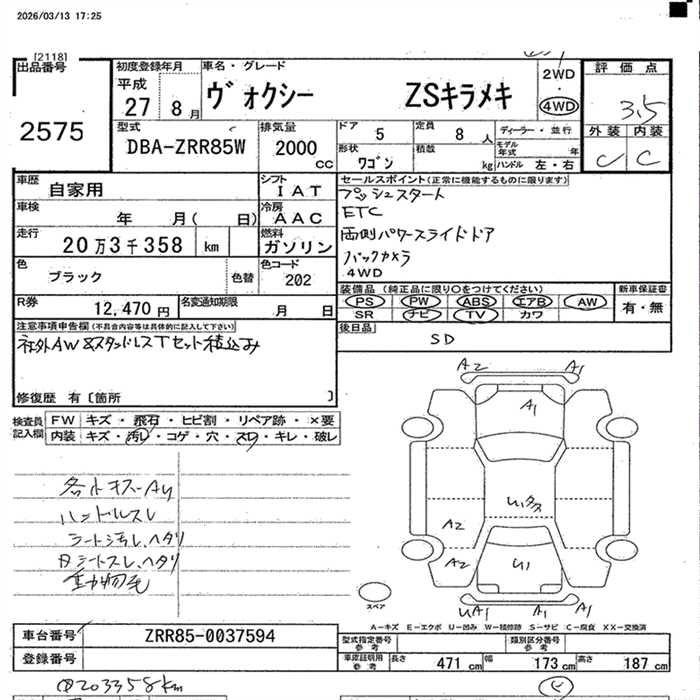 2026/03/13 17:25
[2118]
出品番号
2575
初度登録年月
平成
27 8月
車名・グレード
ヴォクシー ZSキラメキ
2WD
4WD
評価点
3.5
外装 内装
C C
型式
DBA-ZRR85W
排気量
2000 cc
ドア 5
定員 8人
形状 ワゴン
積載 kg
ディーラー・並行
モデル年式 年
ハンドル 左・右
車歴 自家用
シフト IAT
車検 年 月( 日)
冷房 AAC
走行 20万3千358 km
燃料 ガソリン
色 ブラック
色替
色コード 202
R券 12,470円
名変通知期限 月 日
セールスポイント(正常に機能するものに限ります)
プッシュスタート
ETC
両側パワースライドドア
バックカメラ
4WD
装備品(純正品に限り○をつけてください)
PS PW ABS エアB AW
SR ナビ TV カワ
新車保証書
有・無
後日品
SD
注意事項申告欄(不具合内容等は具体的に記入して下さい)
社外AW&スタッドレスTセット積込み
修復歴 有〔箇所 〕
検査員記入欄
FW キズ・飛石・ヒビ割・リペア跡・×要
内装 キズ・汚レ・コゲ・穴・スレ・キレ・破レ
ハンドルスレ
シート汚レ、ヘタリ
動物毛
A2 A1
A1
A2
A2
U1
A1
UA1 A1 A1
スペア
A−キズ E−エクボ U−凹み W−補修跡 S−サビ C−腐食 XX−交換済
車台番号 ZRR85-0037594
登録番号
型式指定番号 参考
類別区分番号 参考
車庫証明用 参考
長さ 471cm 幅 173cm 高さ 187cm
203358km